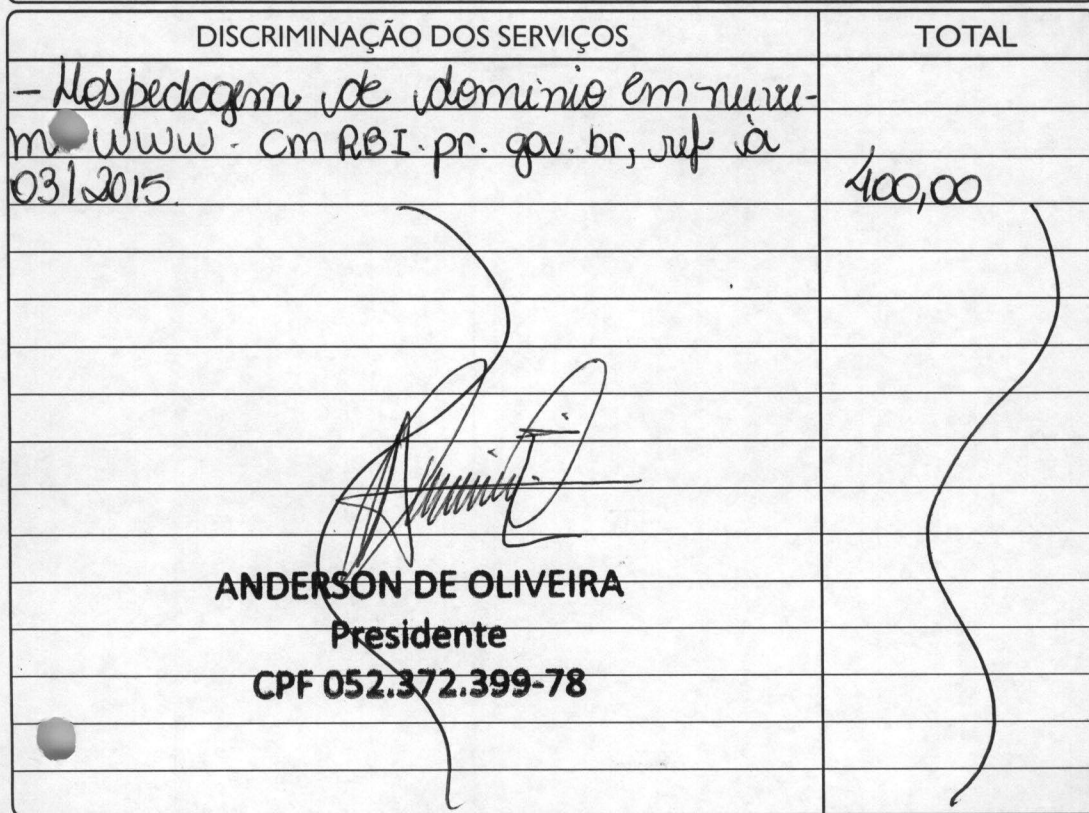 DISCRIMINAÇÃO DOS SERVIÇOS TOTAL
- Hospedagem de dominio em nuve-
m www.cmRBI.pr.gov.br, ref à
03/2015. 400,00
ANDERSON DE OLIVEIRA
Presidente
CPF 052.372.399-78